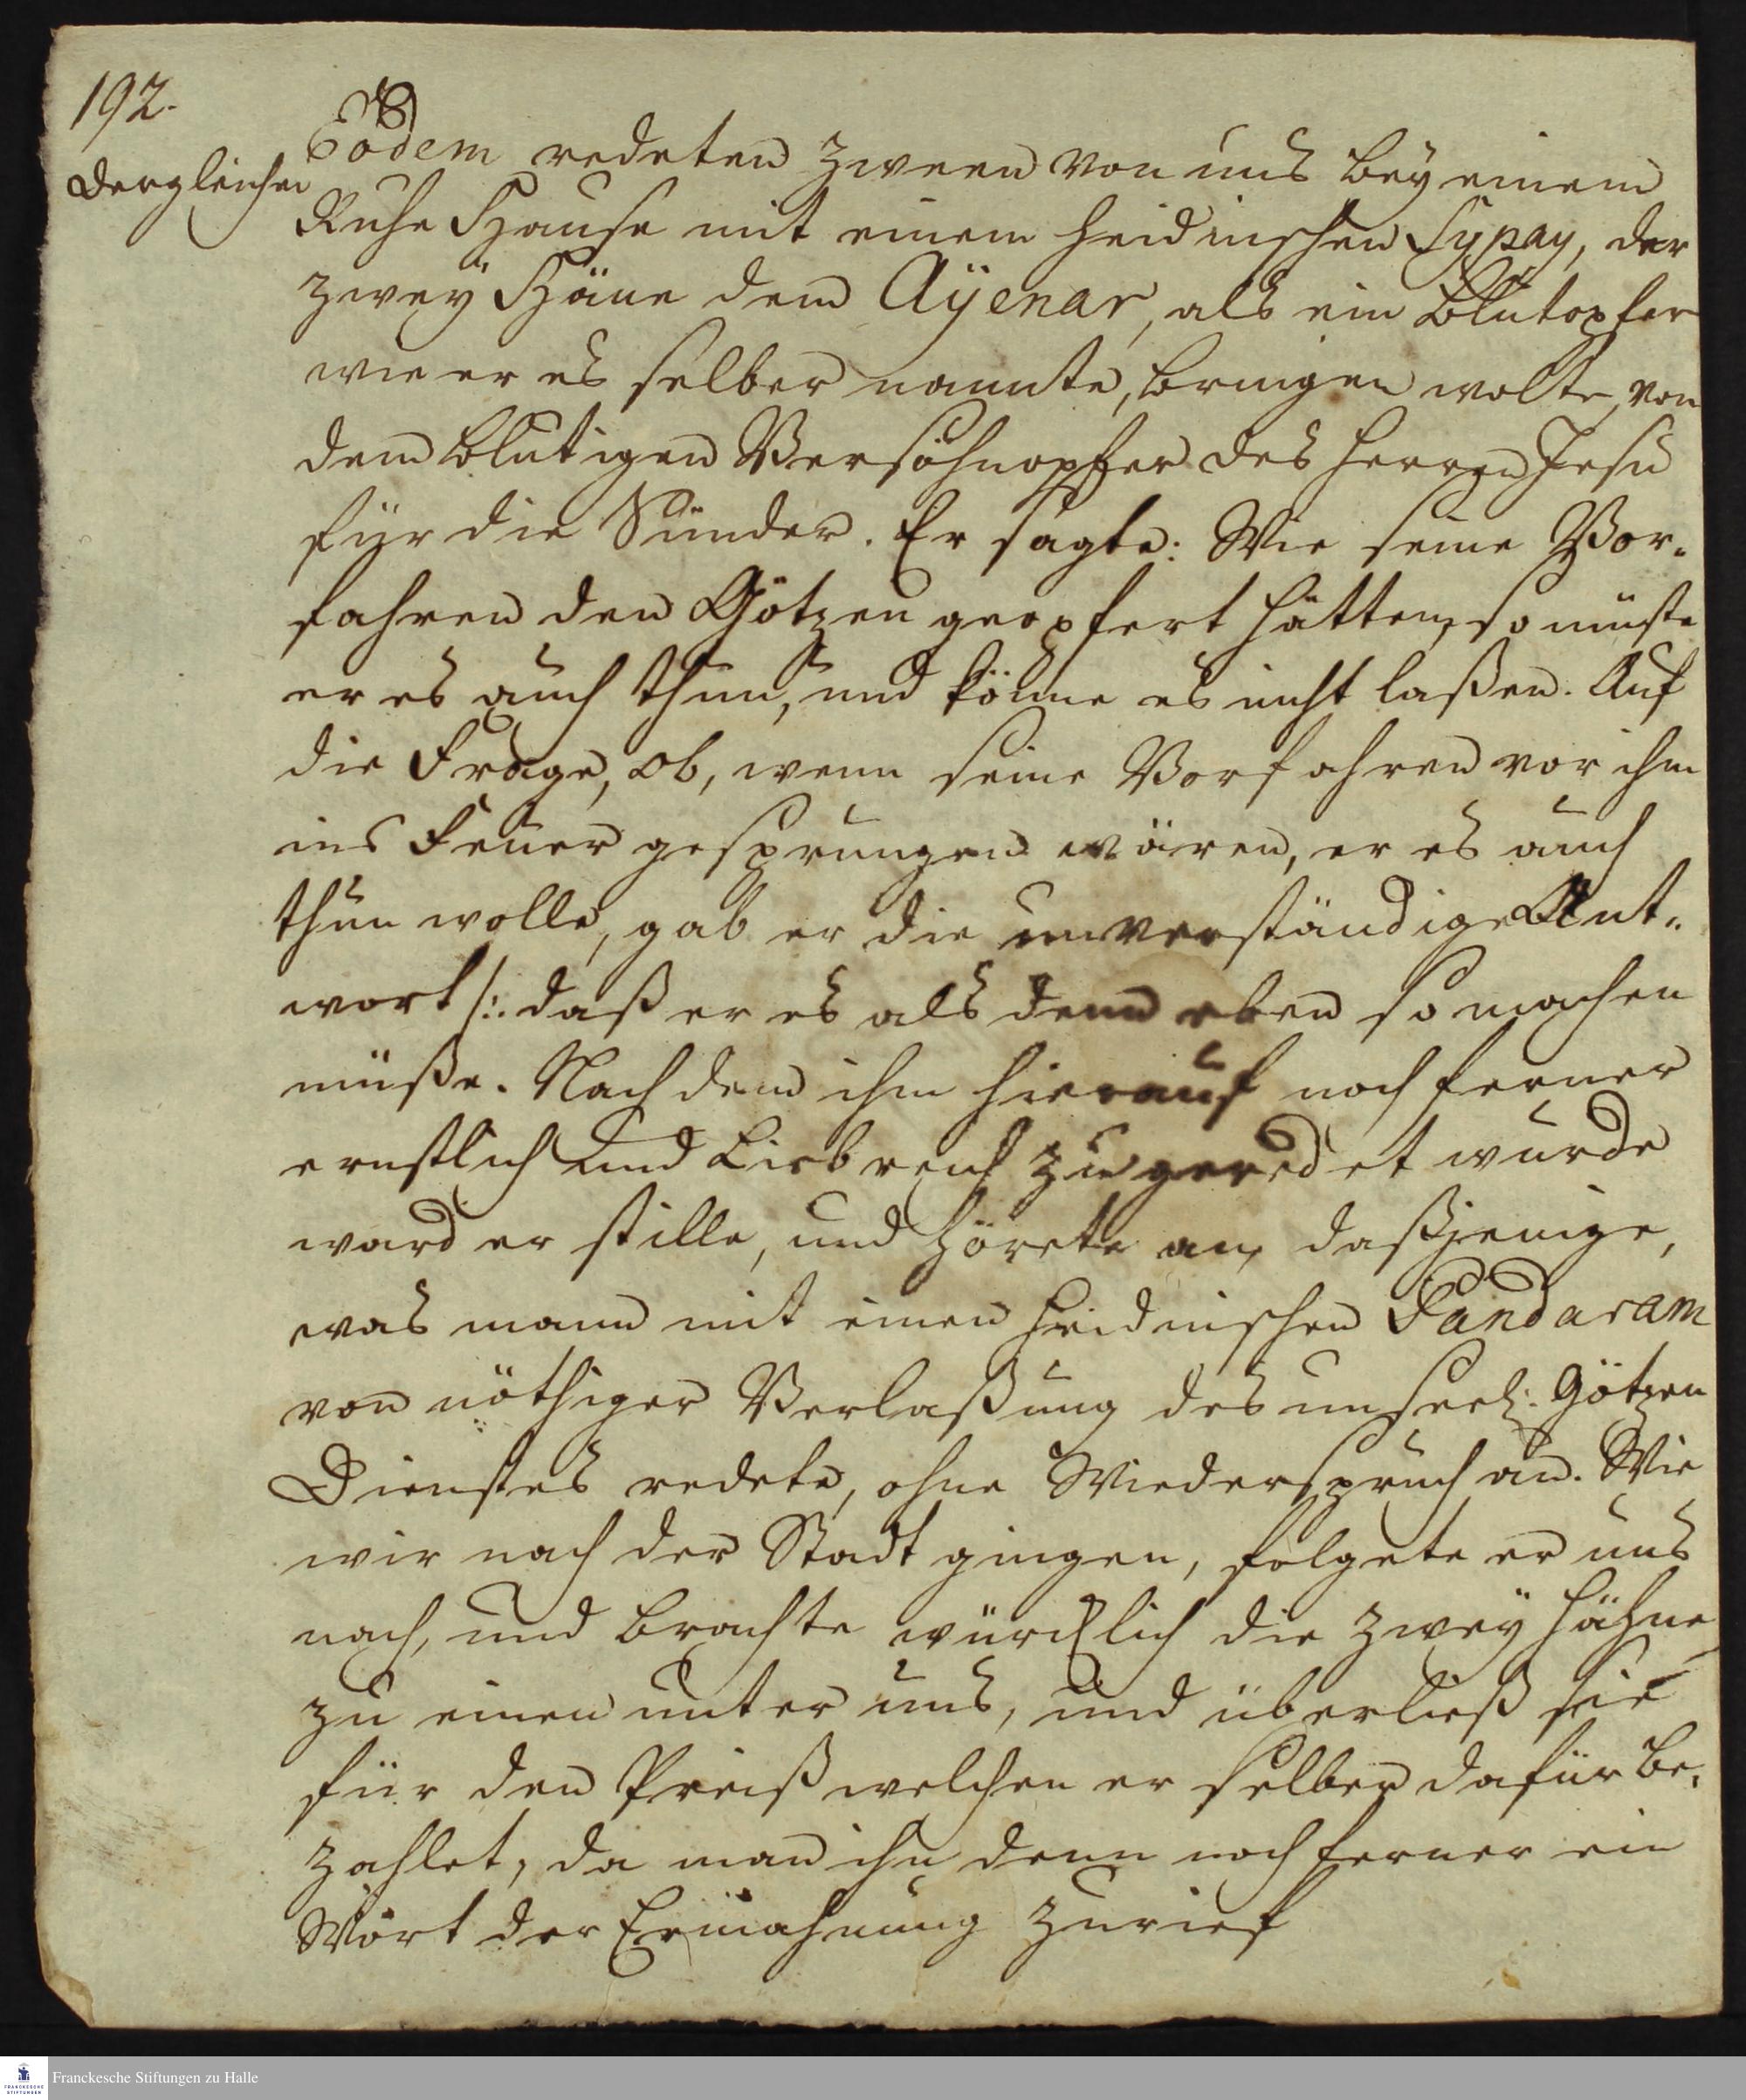 192.
Dergleichen
Eodem redeten zween von uns bey einem
Ruhe Hause mit einem heidnischen Sypay, der
zwey Häne dem Aÿenar, als ein Blutopfer
wie er es selber nannte, bringen wolte, von
dem blutigen Versöhnopfer des Herren Jesu
für die Sünder. Er sagte: Wie seine Vor-
fahren den Götzen geopfert hätten, so müste
er es auch thun, und könne es nicht laßen. Auf
die Frage, ob, wenn seine Vorfahren vor ihm
ins Feuer gesprungen wären, er es auch
thun wolle, gab er die unverständige Ant-
wort /: daß er es als denn eben so machen
müße. Nach dem ihm hierauf noch ferner
ernstlich und Liebreich zugeredet wurde
ward er stille, und hörete an, dasjenige,
was mann mit einen heidnischen Pandaram
von nöthiger Verlaßung des unseel: Götzen
Dienstes redete, ohne Wiederspruch an. Wie
wir nach der Stadt gingen, folgete er uns
nach, und brachte würcklich die zwey Hähne
zu einen unter uns, und überließ sie
für den Preiß welchen er selber dafür be-
zahlet, da man ihn denn noch ferner ein
Wort der Ermahnung zurief
Franckesche Stiftungen zu Halle
FRANCKESCHE
STIFTUNGEN